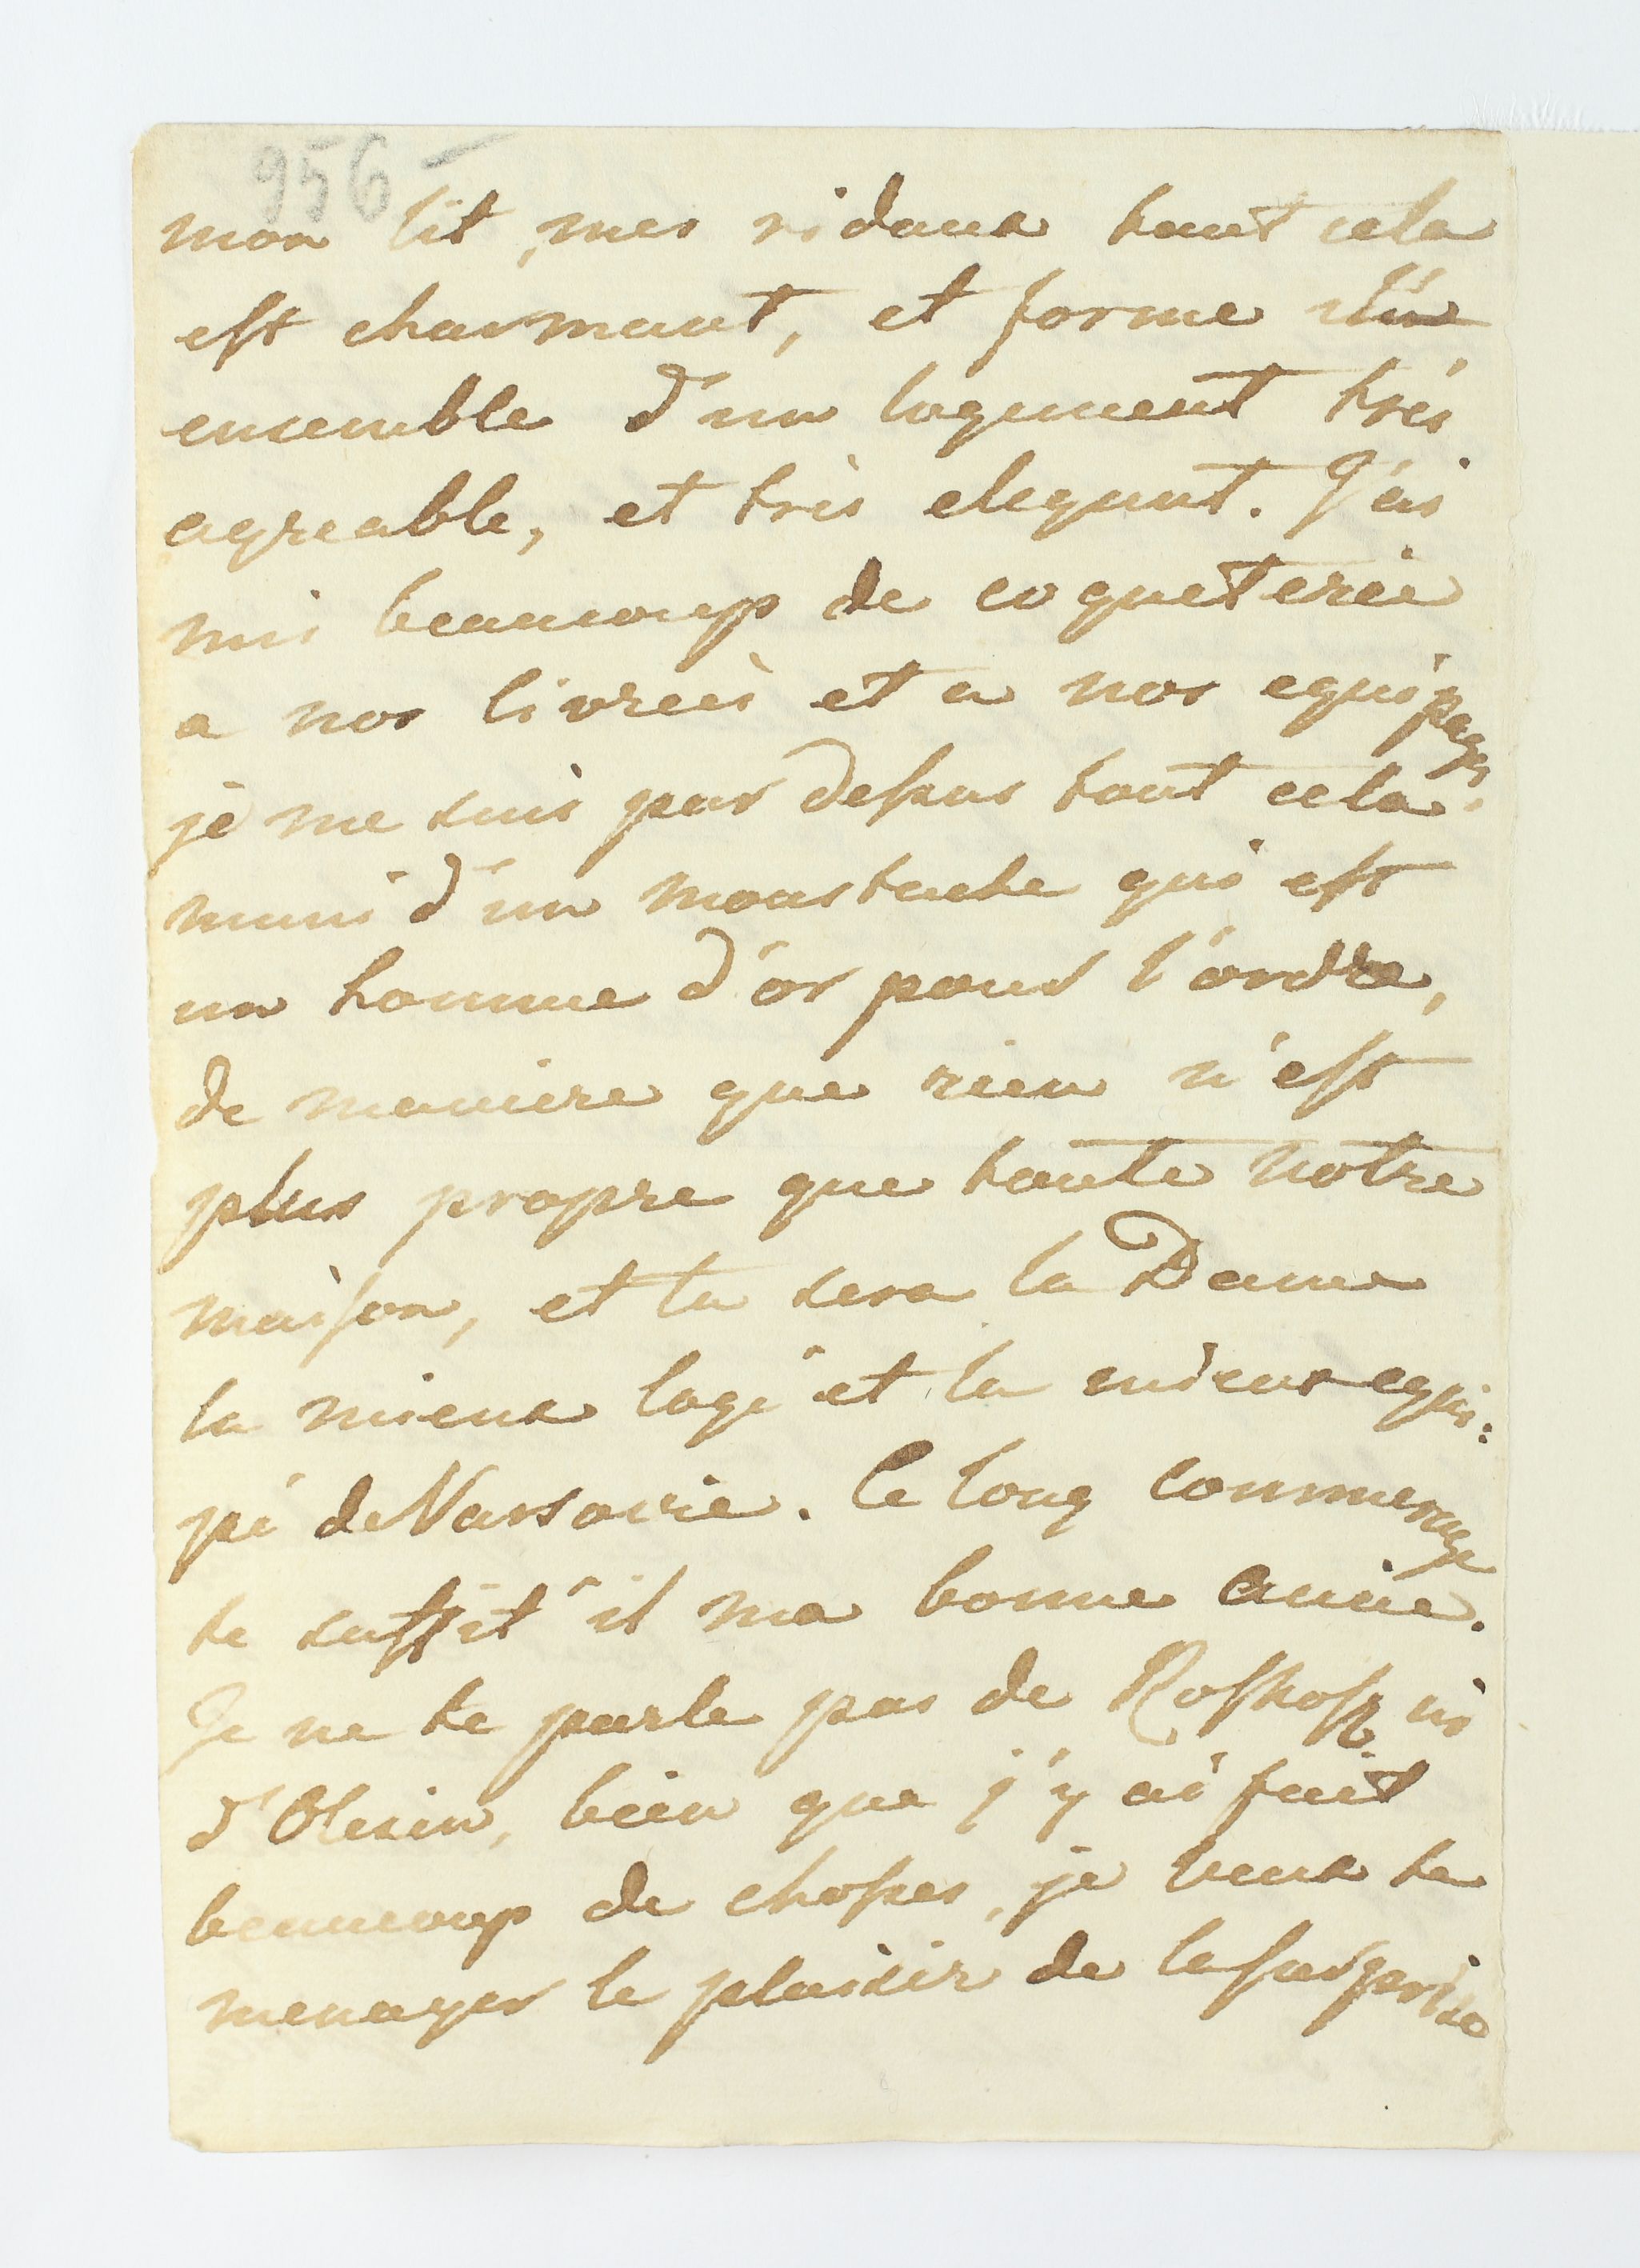 956 -
mon lit, mes ridaux tout cela
est charmant, et forme un
ensemble d'un logement très
agreable, et très elegant. J'ai
mis beaucoup de coqueterie
a nos livreés et a nos equipages,
je me suis par dessus tout cela
muni d'un moustache qui est
un homme d'or pour l'ordre,
de maniere que rien n'est
plus propre que toute notre
maison, et tu sera la Dame
la mieux logé et la mieux equi:
pé de Varsovie. Ce long commerage
te suffit il ma bonne amie.
Je ne te parle pas de ni
d'Olesin, bien que j'y ai fait
beaucoup de choses, je veux te
menager le plaisir de la surprise